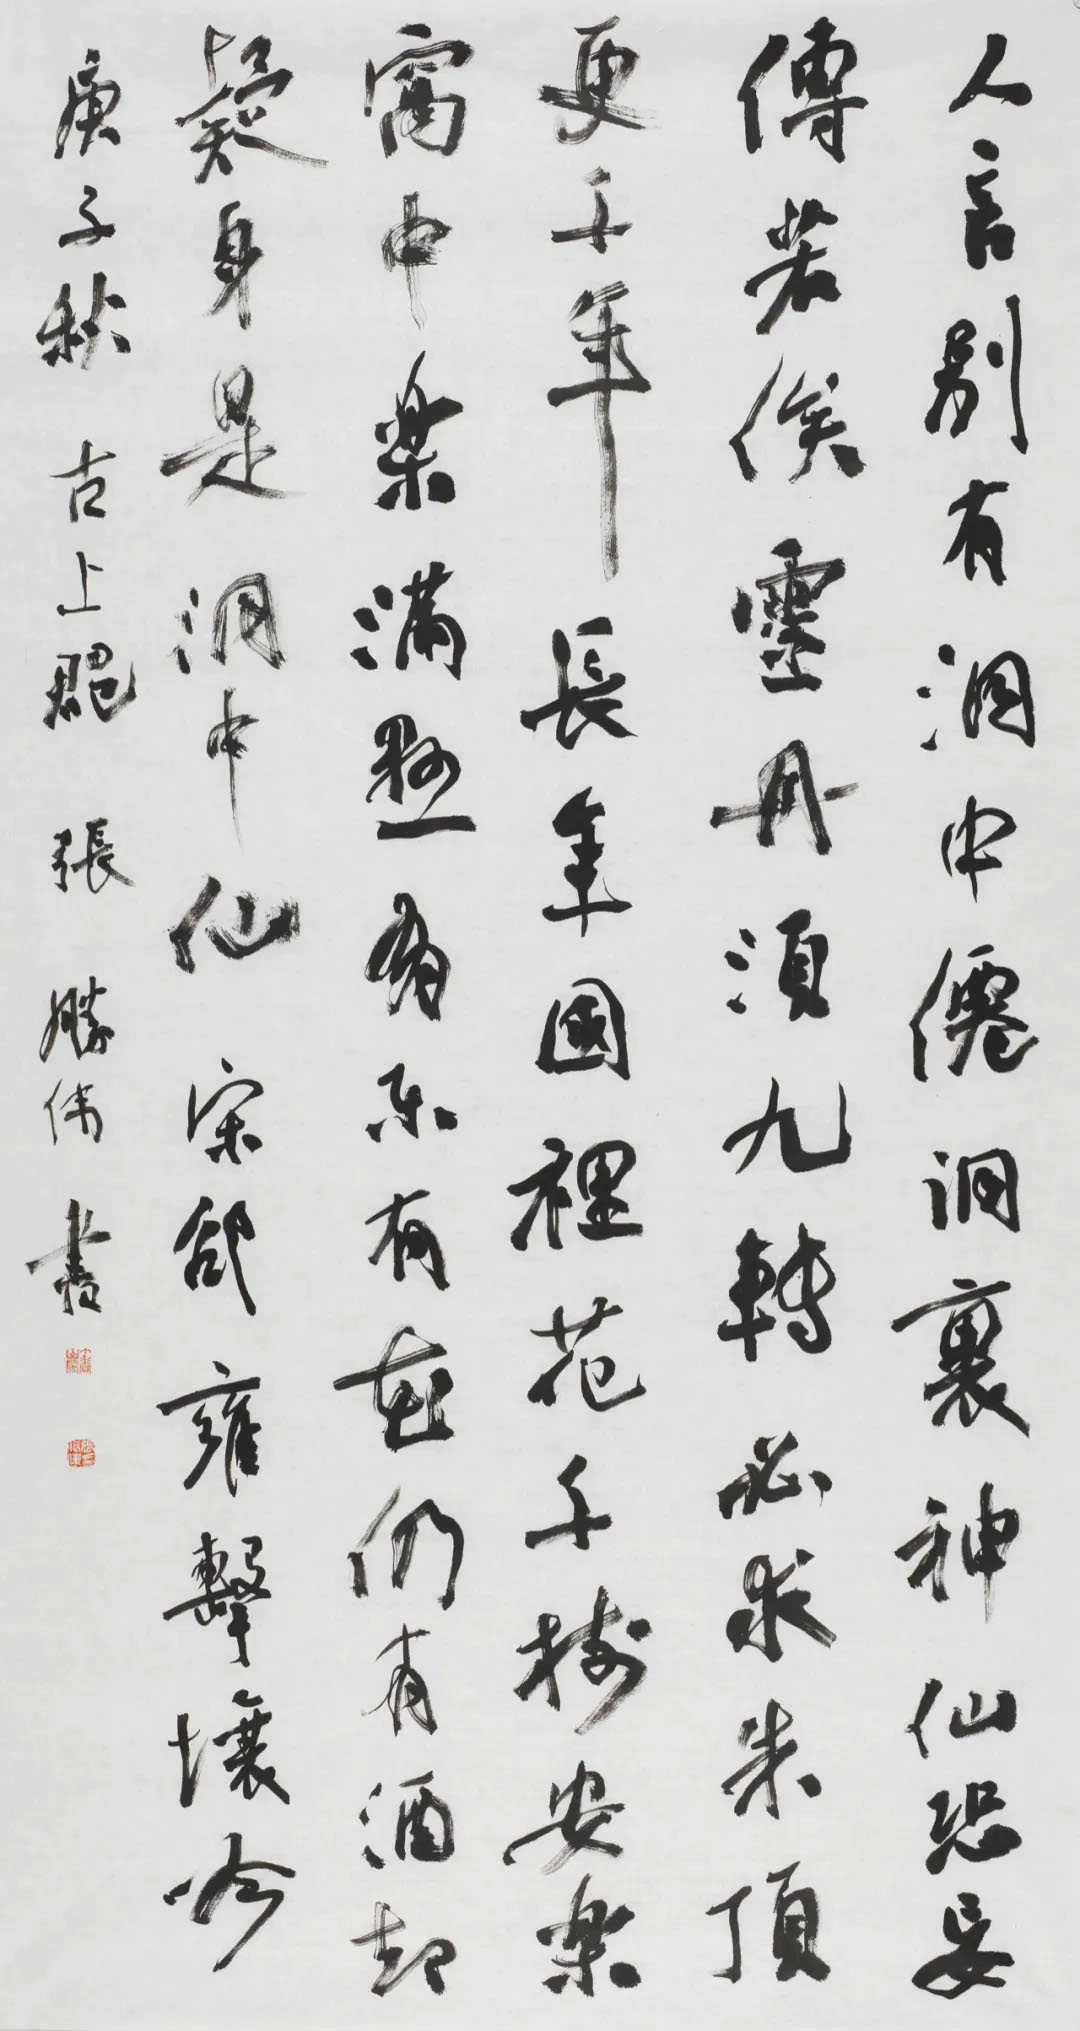 人言別有洞中僊洞裏神仙恐妄
傳若俟靈丹須九轉必求朱頂
更千年長年國裡花千樹安樂
窩中樂滿懸有樂有花仍有酒却
疑身是洞中仙 宋邵雍擊壤吟
庚子秋 古上郡 張勝伟書